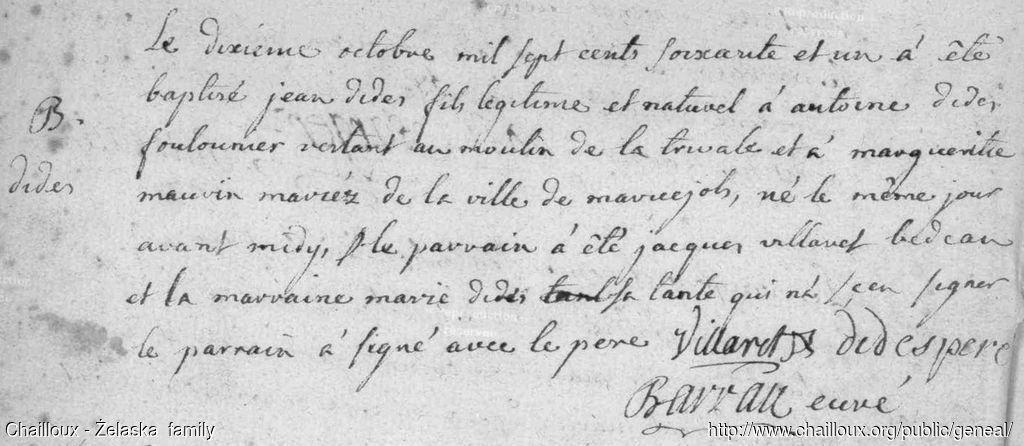 Le dixieme octobre mil sept cents soixante et un á été
B.
baptisé jean dides fils legitime et naturel á antoine dides
foulounier restant au moulin de la et á margueritte
dides
mauvin mariéz de la ville de maruejols, né le même jour
avant midy, le parrain á été jacques villaret bedeau
et la marraine marie dides sa tante qui ná sçeu signer
le parrain á signé avec le pere Villaret dides pere
Barrau curé
Chailloux - Żelaska family
http://www.chailloux.org/public/geneal/